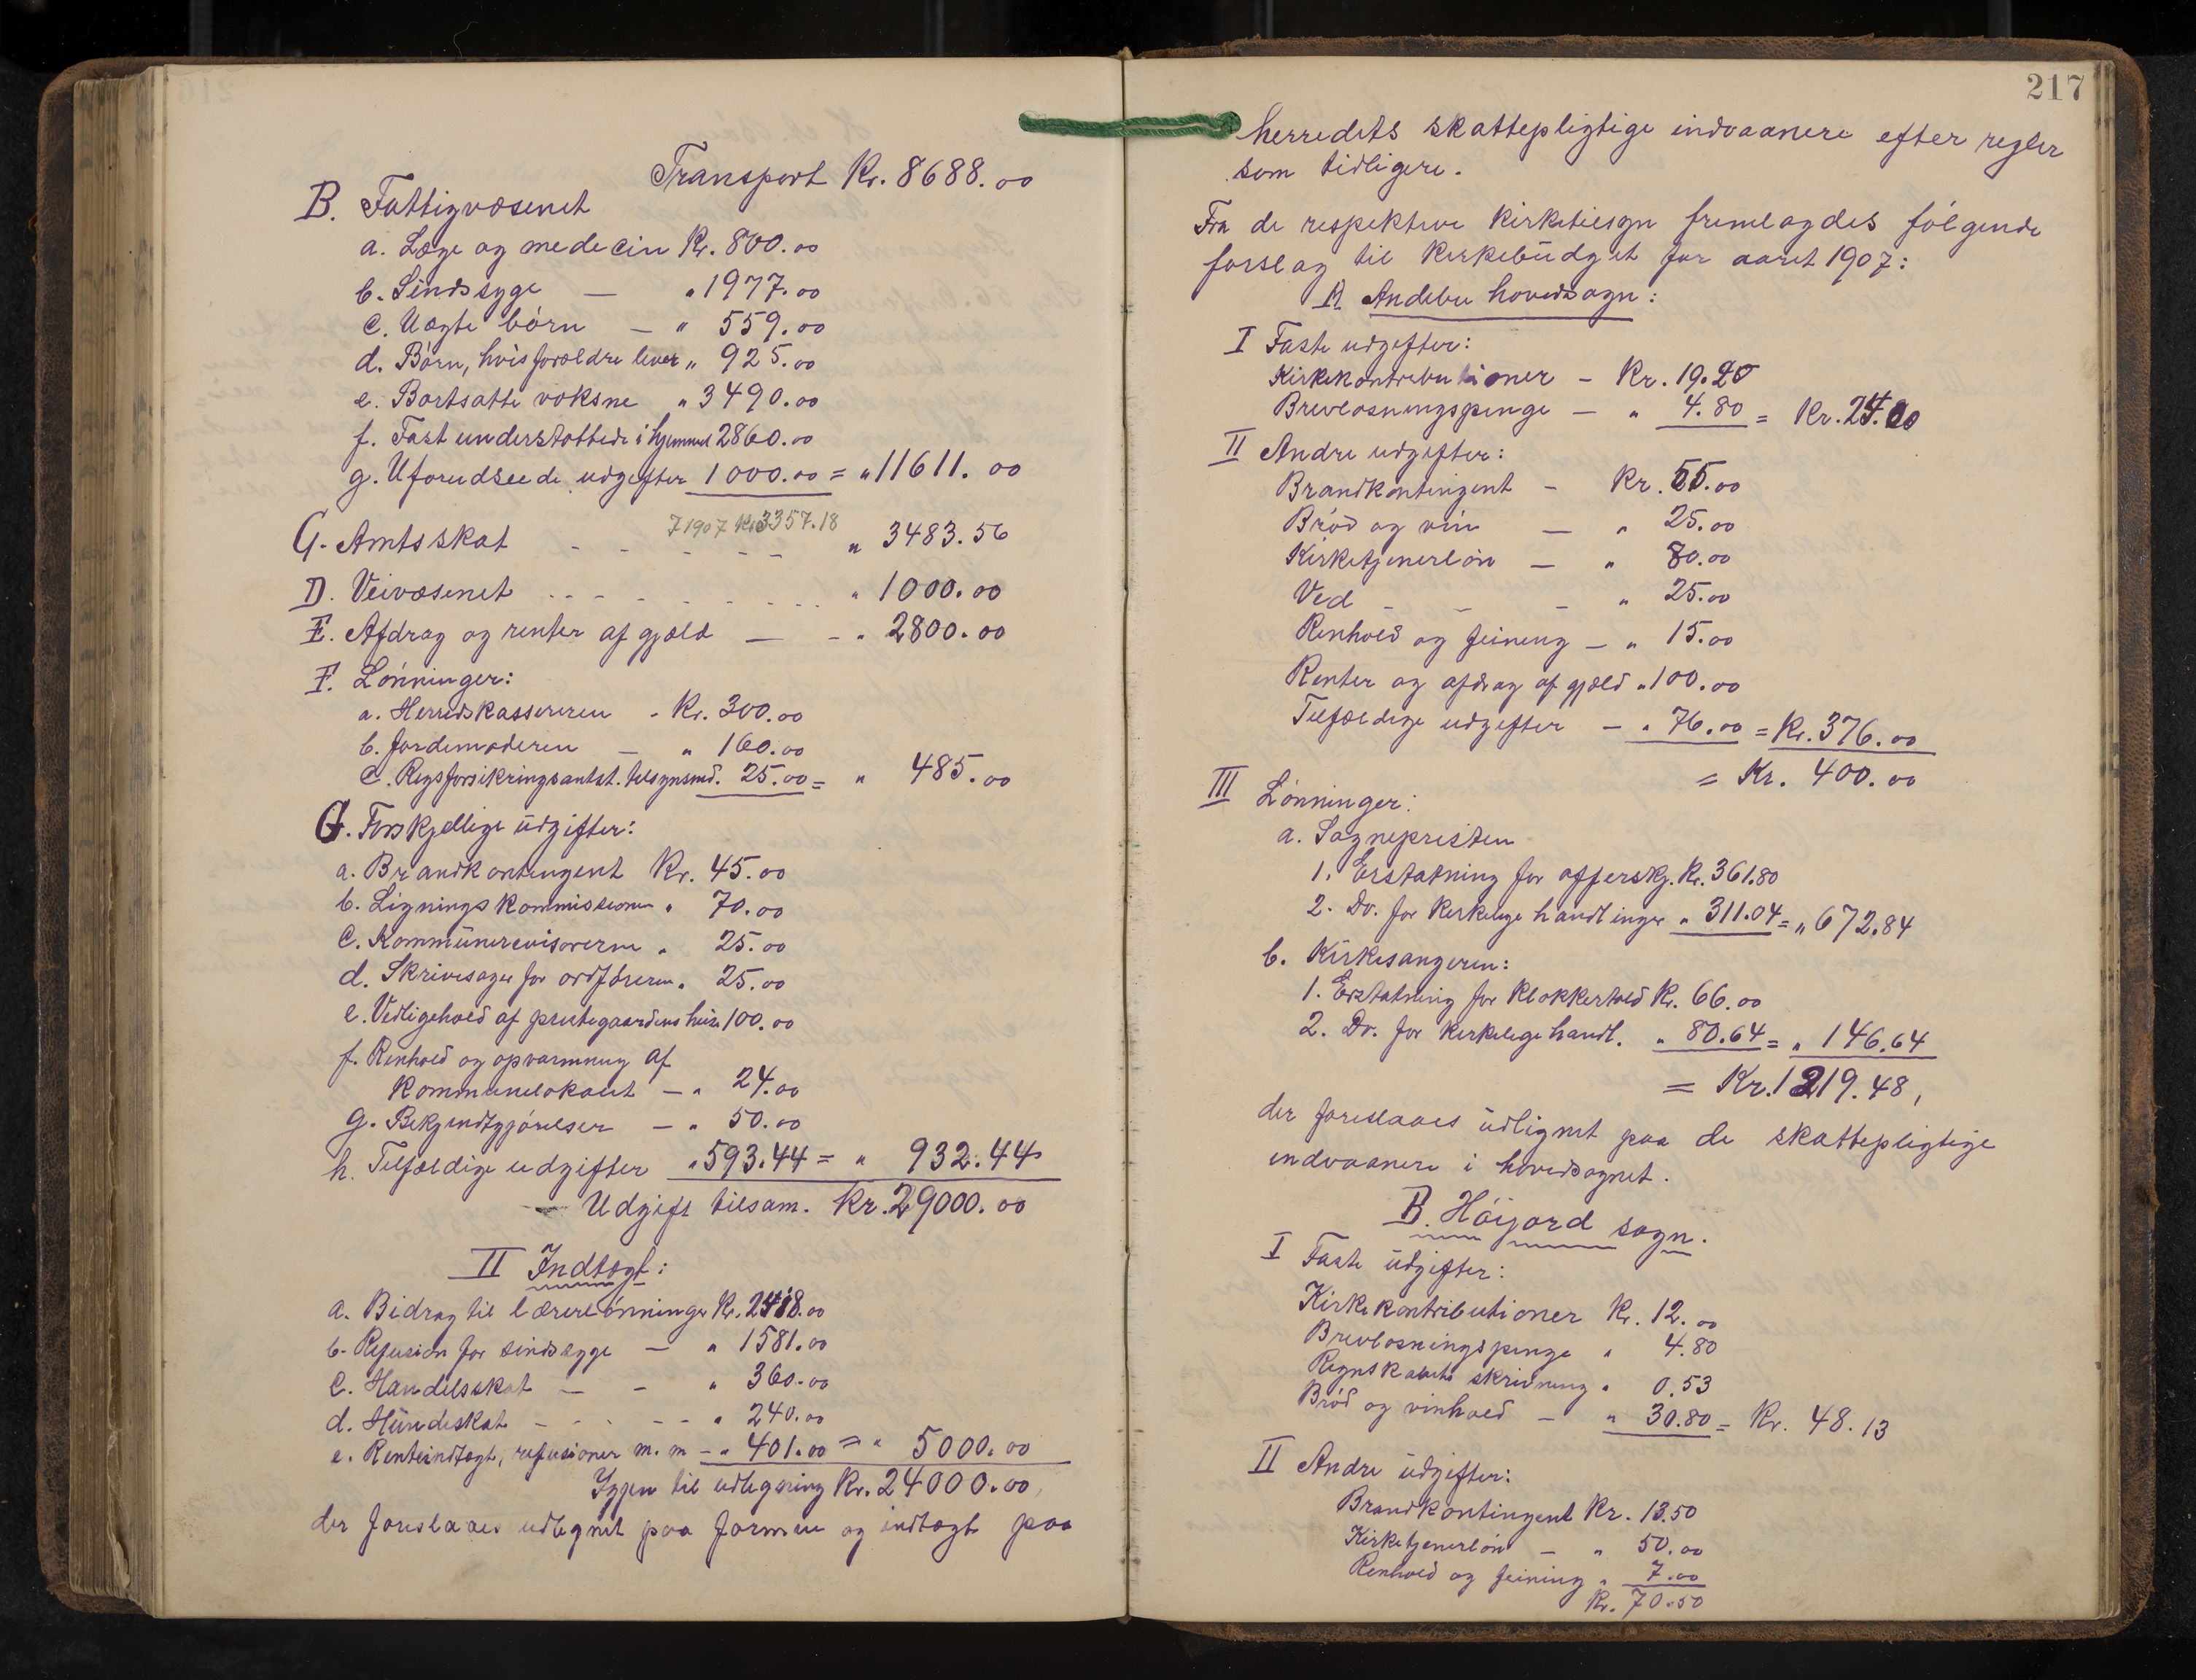 Transport Kr. 8688.00
B. Fattigvæsenet
a. Læge og medecin Kr. 800.00
b. Sindssyge — " 1977.00
c. Uægte børn — " 559.00
d. Børn, hvis forældre lever " 925.00
e. Bortsatte voksne " 3490.00
f. Fast understøttede i hjemmet 2860.00
g. Uforudseede udgifter 1000.00 = " 11611.00
7 1907 Kr 3357.18
C. Amtsskat - - - - - " 3483.56
D. Veivæsenet - - - - - - " 1000.00
E. Afdrag og renter af gjæld — - " 2800.00
F. Lønninger:
a. Herredskassereren - Kr. 300.00
b. Jordemoderen — " 160.00
c. Rigsforsikringsanst. tilsynsmd. 25.00 = " 485.00
G. Forskjellige udgifter:
a. Brandkontingent Kr. 45.00
b. Ligningskommissionen " 70.00
c. Kommunerevisorerne " 25.00
d. Skrivesager for ordføreren " 25.00
e. Vedligehold af prestegaardens huse 100.00
f. Renhold og opvarmning af
kommunelokalet — " 24.00
g. Bekjendtgjørelser — " 50.00
h. Tilfældige udgifter " 593.44 = " 932.44
Udgift tilsam. Kr. 29000.00
II Indtægt:
a. Bidrag til lærerlønninger Kr. 2418.00
b. Refusion for sindssyge — " 1581.00
c. Handelsskat — - " 360.00
d. Hundeskat - - - - " 240.00
e. Renteindtægt, refusioner m. m - " 401.00 = " 5000.00
Igjen til udligning Kr. 24000.00,
der foreslaaes udlignet paa formue og indtægt paa
217
herredets skattepligtige indvaanere efter regler
som tidligere.
Fra de respektive kirketilsyn fremlagdes følgende
forslag til kirkebudget for aaret 1907:
A Andebu hovedsogn:
I Faste udgifter:
Kirkekontributioner - Kr. 19.20
Brevløsningspenge — " 4.80 = Kr. 24.00
II Andre udgifter:
Brandkontingent - Kr. 55.00
Brød og vin — " 25.00
Kirketjenerløn — " 80.00
Ved - - - " 25.00
Renhold og feining — " 15.00
Renter og afdrag af gjæld " 100.00
Tilfældige udgifter — " 76.00 = Kr. 376.00
= Kr. 400.00
III Lønninger:
a. Sognepresten
1. Erstatning for offerskj. Kr. 361.80
2. Do. for kirkelige handlinger " 311.04 = " 672.84
b. Kirkesangeren:
1. Erstatning for klokkertold Kr. 66.00
2. Do. for kirkelige handl. " 80.64 = " 146.64
= Kr. 1219.48,
der foreslaaes udlignet paa de skattepligtige
indvaanere i hovedsognet.
B. Høijord sogn.
I Faste udgifter:
Kirkekontributioner Kr. 12.00
Brevløsningspenge " 4.80
Regnskabets skrivning " 0.53
Brød og vinhold — " 30.80 = Kr. 48.13
II Andre udgifter:
Brandkontingent Kr. 13.50
Kirketjenerløn — " 50.00
Renhold og feining " 7.00
Kr. 70.50